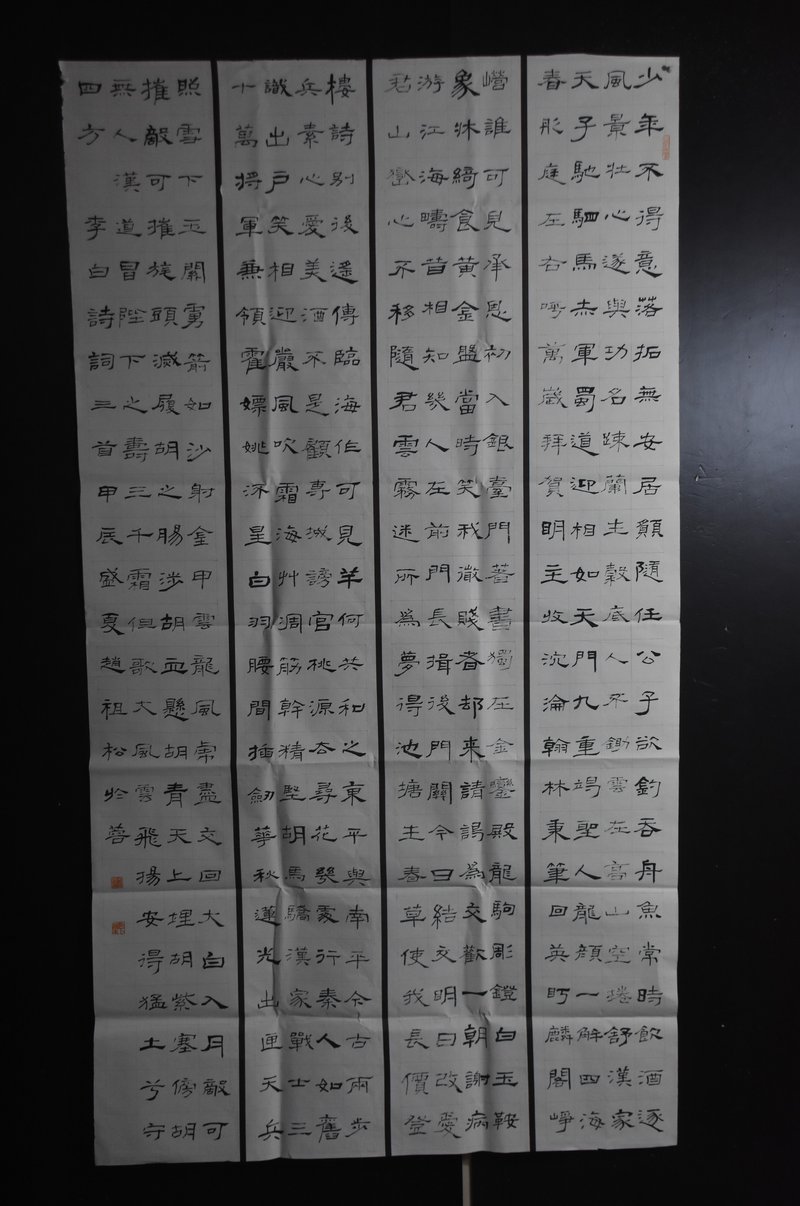 少年不得意落拓無安居願隨任公子欲釣吞舟魚常時飲酒逐
風景壯心遂與功名疎蘭生穀底人不鋤雲在高山空捲舒漢家
天子馳駟馬赤軍蜀道迎相如天門九重謁聖人龍顏一解四海
春彤庭左右呼萬歲拜賀明主收沉淪翰林秉筆回英眄麟閣崢
嶸誰可見承恩初入銀臺門著書獨在金鑾殿龍駒彫鐙白玉鞍
象牀綺食黃金盤當時笑我微賤者却來請謁為交歡一朝謝病
游江海疇昔相知幾人在前門長揖後門關今日結交明日改愛
君山巒心不移隨君雲霧迷所為夢得池塘生春草使我長價登
樓詩別後遙傳臨海作可見羊何共和之東平與南平今古兩步
兵素心愛美酒不是顧專城謫官桃源去尋花幾處行秦人如舊
識出戶笑相迎嚴風吹霜海艸凋筋幹精堅胡馬驕漢家戰士三
十萬將軍兼領霍嫖姚流星白羽腰間插劍華秋蓮光出匣天兵
照雪下玉關虜箭如沙射金甲雲龍風虎盡交回太白入月敵可
摧敵可摧旄頭滅履胡之腸涉胡血懸胡青天上埋胡紫塞傍胡
無人漢道昌陛下之壽三千霜但歌大風雲飛揚安得猛士兮守
四方 李白詩詞三首甲辰盛夏趙祖松於蓉